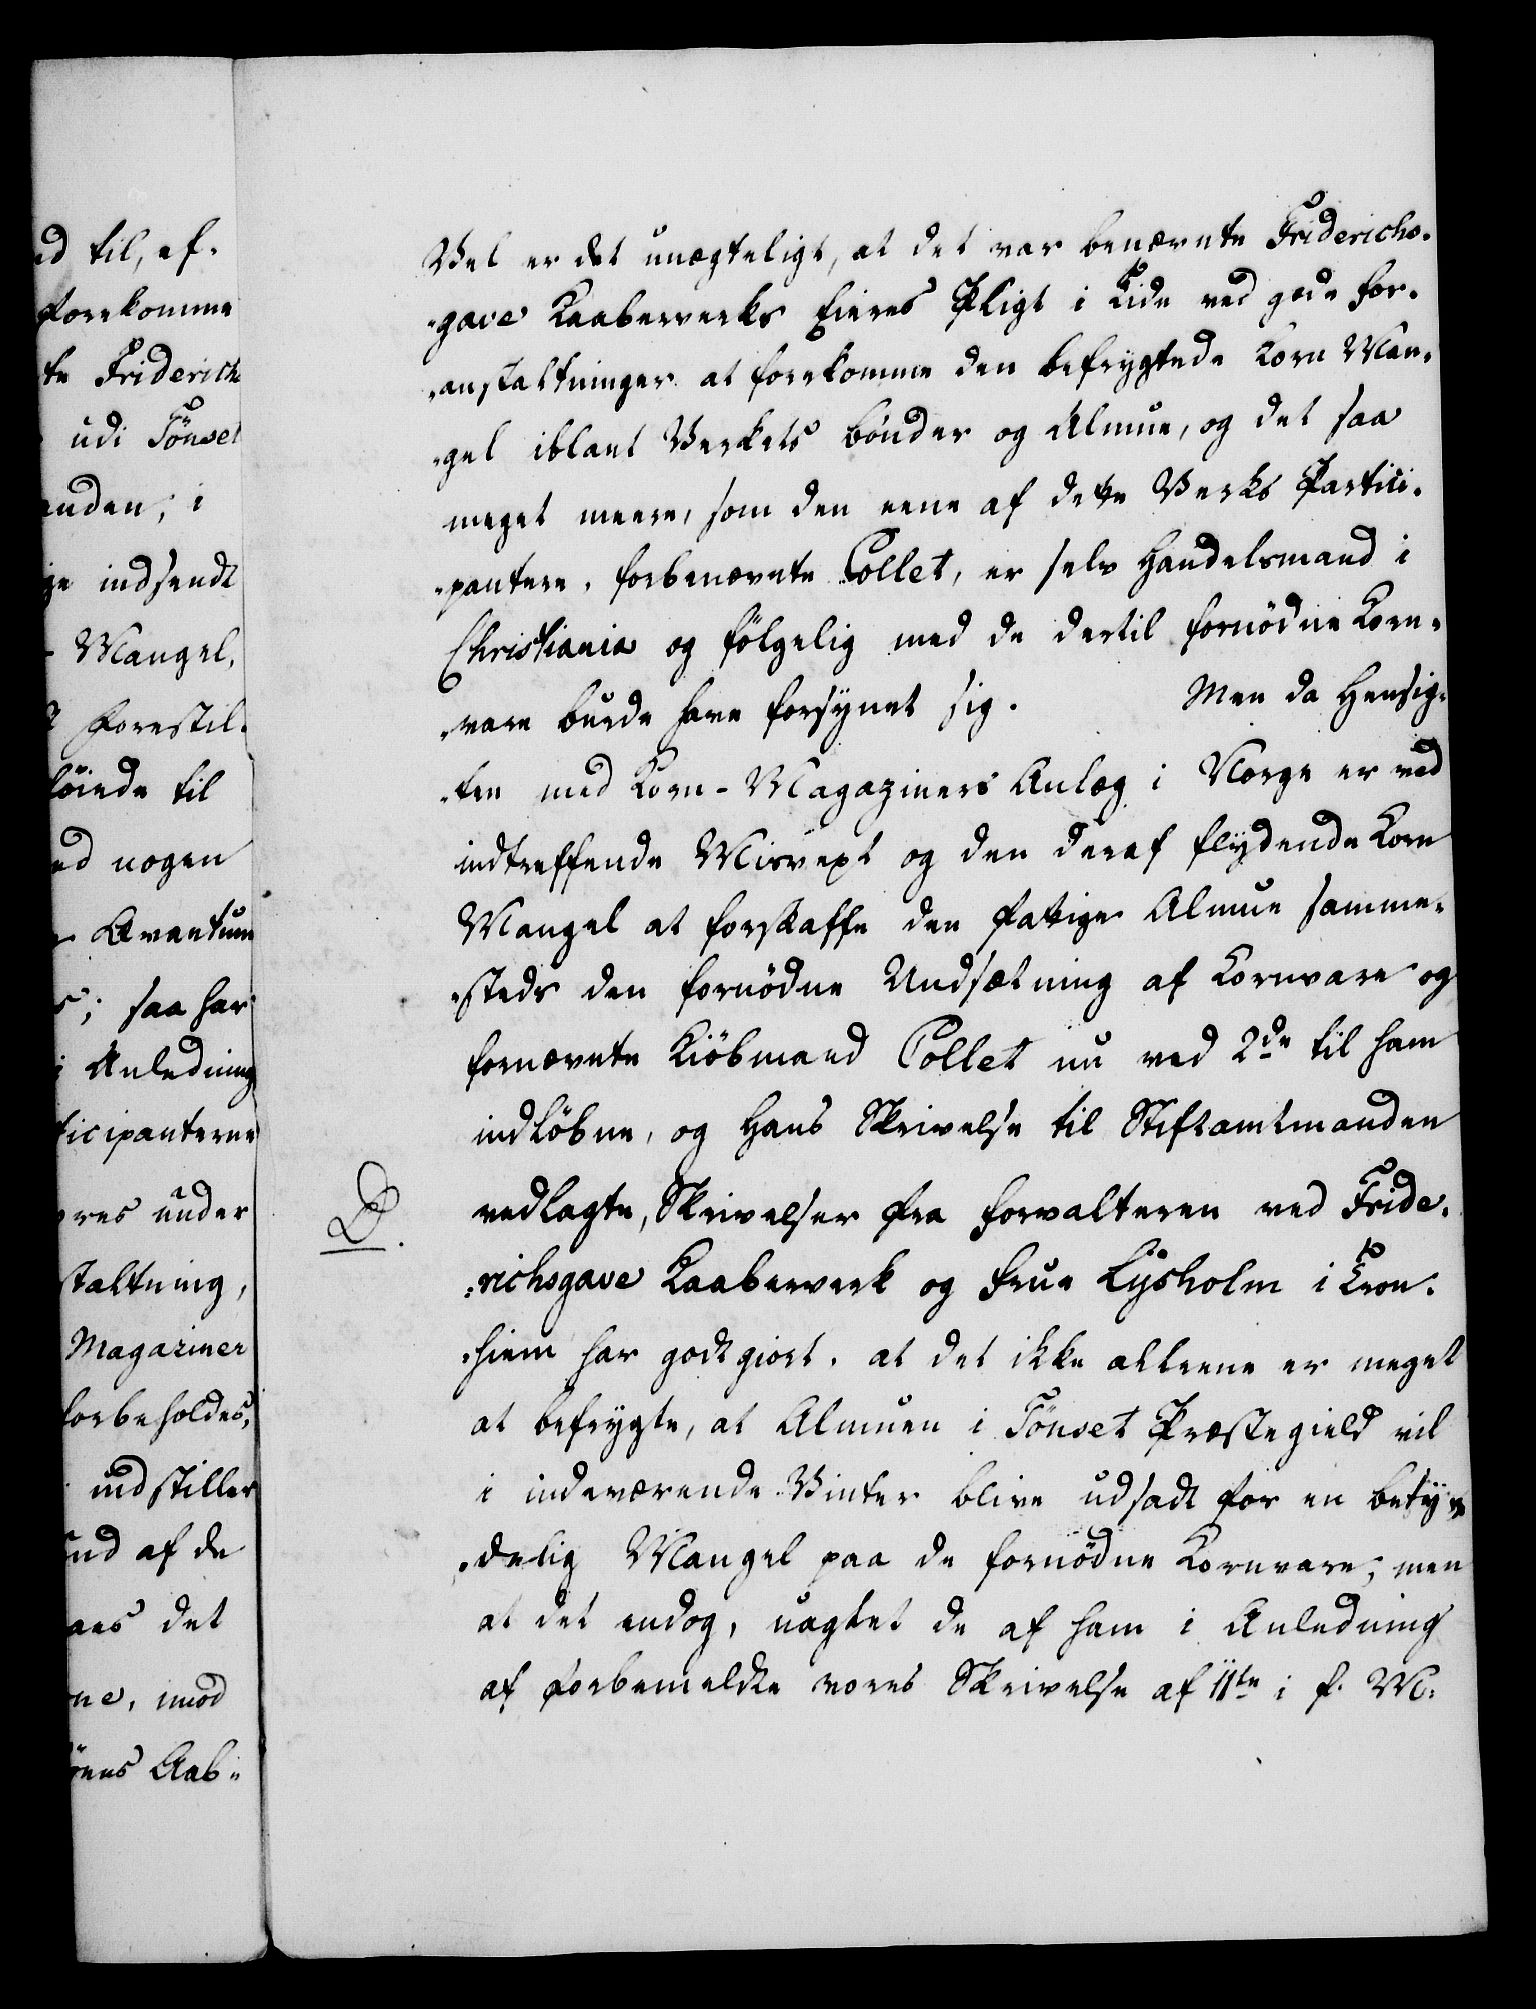 ed til, ef-
forekomme
te Friderich
udi Tönset
anden, i
ge indsendt
Mangel,
Forestil-
löiede til
ed nogen
Qvantum
saa har
i Anledning
ticipanterne
ores under
staltning,
Magaziner
forbeholdes,
indstiller
af de
aes det
ne, imod
Aab-
Vel er det unægteligt, at det var benævnte Friderichs-
-gave Kaaberverks Eieres Pligt i Tide ved gode For-
-anstaltninger at forekomme den befrygtede Korn Man-
-gel iblant Verkets bönder og Almue, og det saa
meget meere, som den eene af dette Verks Partici-
-pantere, forbenævnte Collet, er selv Handelsmand i
Christiania og fölgelig med de dertil fornödne Korn-
-vare burde have forsynet sig. Men da Hensig-
-ten med Korn-Magaziners Anlæg i Norge er ved
indtreffende Misvext og den deraf flydende Korn
Mangel at forskaffe den fattige Almue samme-
-steds den fornödne Undsætning af Kornvare og
fornævnte Kiöbmand Collet nu ved 2de til ham
indlöbne, og Hans Skrivelse til Stiftamtmanden
D. vedlagte, Skrivelser fra Forvalteren ved Fride-
-richsgave Kaaberverk og Frue Lysholm i Tron-
-hiem har godtgiort, at det ikke alleene er meget
at befrygte, at Almuen i Tönset Præstegield vil
i indeværende Vinter blive udsadt for en bety-
-delig Mangel paa de fornödne Kornvare, men
at det endog, uagtet de af ham i Anledning
af forbemeldte vores Skrivelse af 11te i f. M.